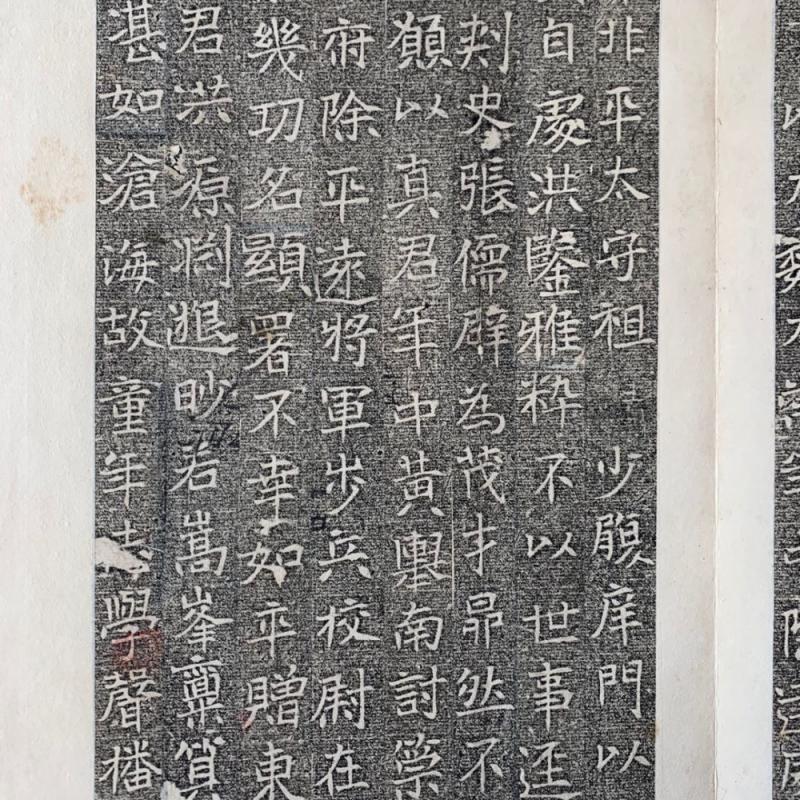 北平太守祖 少願庠門以
自處洪鑒雅粹不以世事迕
刾史張儒辟為茂才昴然不
願以真君年中黃輿南討策
府除平遠將軍步兵校尉在
幾功名顯署不幸如卒贈東
君洪源渕遐眇若嵩峯稟質
湛如滄海故童年志學聲播